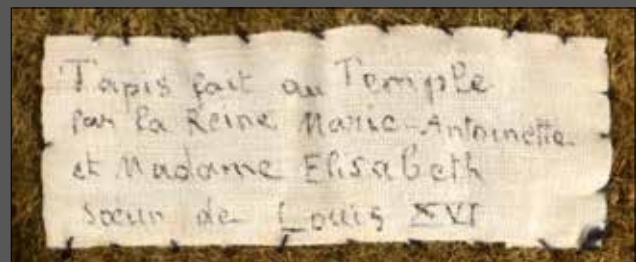 Tapis fait au Temple
par la Reine Marie-Antoinette
et Madame Elisabeth
sœur de Louis XVI